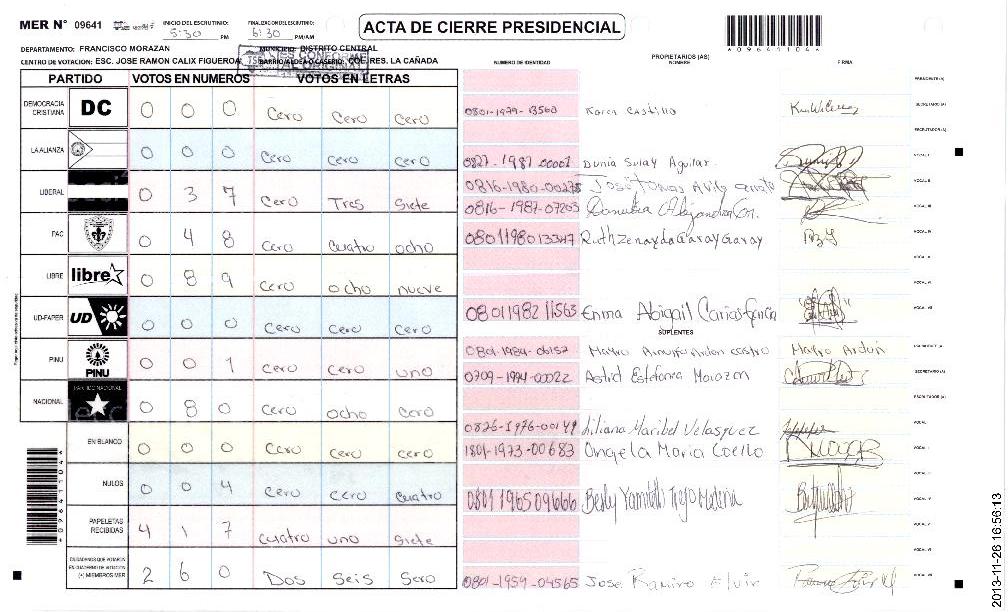 MER N° 09641
INICIO DEL ESCRUTINIO: 5:30 PM
FINALIZACION DEL ESCRUTINIO: 6:30 PM/AM
ACTA DE CIERRE PRESIDENCIAL
*09641104*
DEPARTAMENTO: FRANCISCO MORAZAN
MUNICIPIO: DISTRITO CENTRAL
CENTRO DE VOTACION: ESC. JOSE RAMON CALIX FIGUEROA
BARRIO/ALDEA O CASERIO: COL. RES. LA CAÑADA
TSE ES CONFORME AL ORIGINAL
NUMERO DE IDENTIDAD
PROPIETARIOS (AS)
NOMBRE
FIRMA
PARTIDO VOTOS EN NUMEROS VOTOS EN LETRAS
DEMOCRACIA CRISTIANA DC 0 0 0 Cero Cero Cero
LA ALIANZA 0 0 0 Cero Cero Cero
LIBERAL 0 3 7 Cero Tres Siete
PAC 0 4 8 Cero Cuatro ocho
LIBRE libre 0 8 9 Cero ocho nueve
UD-FAPER UD 0 0 0 Cero Cero Cero
PINU PINU 0 0 1 Cero Cero uno
NACIONAL PARTIDO NACIONAL 0 8 0 Cero ocho Cero
EN BLANCO 0 0 0 Cero Cero Cero
NULOS 0 0 4 Cero Cero Cuatro
PAPELETAS RECIBIDAS 4 1 7 Cuatro uno Siete
CIUDADANOS QUE VOTARON EN CUADERNO DE VOTACION (+) MIEMBROS MER 2 6 0 Dos Seis Sero
PRESIDENTE (A)
0801-1979-13560 Karen Castillo SECRETARIO (A)
ESCRUTADOR (A)
0827-1987-00001 Dunia Suyay Aguilar. VOCAL I
0816-1980-00275 José Tomas Avila VOCAL II
0816-1987-07203 Alejandra VOCAL III
0801198013347 Ruth Zenayda Garay Garay VOCAL IV
VOCAL V
VOCAL VI
0801198211563 Emma Abigail Carias Garcia VOCAL VII
SUPLENTES
0801-1984-06157 Mayro Ardon castro Mayro Ardon
0709-1994-00022 Astrid Estefania Morazan SECRETARIO (A)
ESCRUTADOR (A)
0826-1976-00149 Liliana Maribel Velasquez VOCAL I
1801-1973-00683 Angela Maria Coello
0801196509666 Yamileth Trejo Medina
VOCAL V
VOCAL VI
0801-1959-04565 Jose Ramiro Elvir
*09641104*
2013-11-26 16:56:13